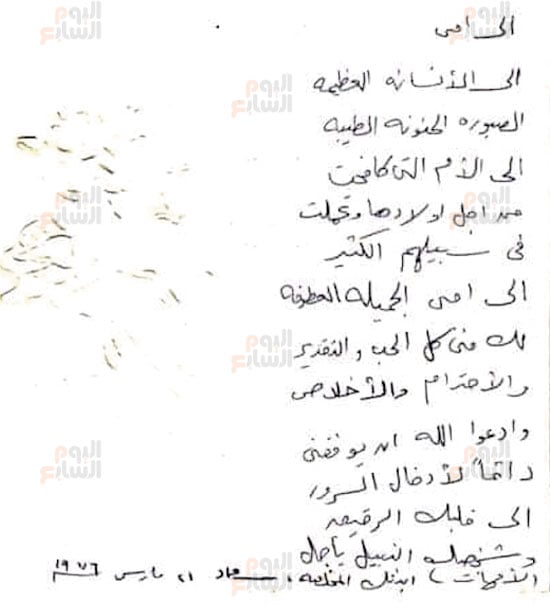 الى امى
الى الأنسانه العظيمه
الصبوره الحنونه الطيبه
الى الأم التى كافحت
من اجل اولادها وتحملت
فى سبيلهم الكثير
الى امى الجميله العطوفه
لك منى كل الحب والتقدير
والأحترام والأخلاص
وادعوا الله ان يوفقنى
دائماً لأدخال السرور
الى قلبك الرقيق
وشخصك النبيل يا أجمل
الأمهات) ابنتك المخلصه، سعاد ٢١ مارس ١٩٧٦
اليوم السابع